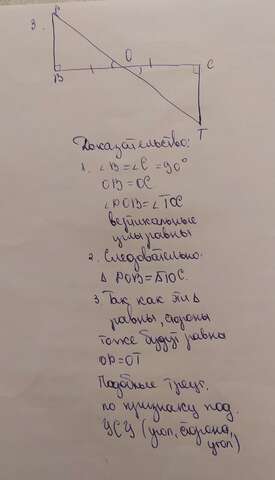 3.
P
O
B
C
T
Доказательство:
1. ∠B = ∠C = 90°
OB = OC
∠POB = ∠TOC
вертикальные
углы равны
2. Следовательно
Δ POB = ΔTOC.
3. Так как эти Δ
равны, стороны
тоже будут равны
OP = OT
Подобные треуг.
по признаку под.
УСУ (угол, сторона,
угол)